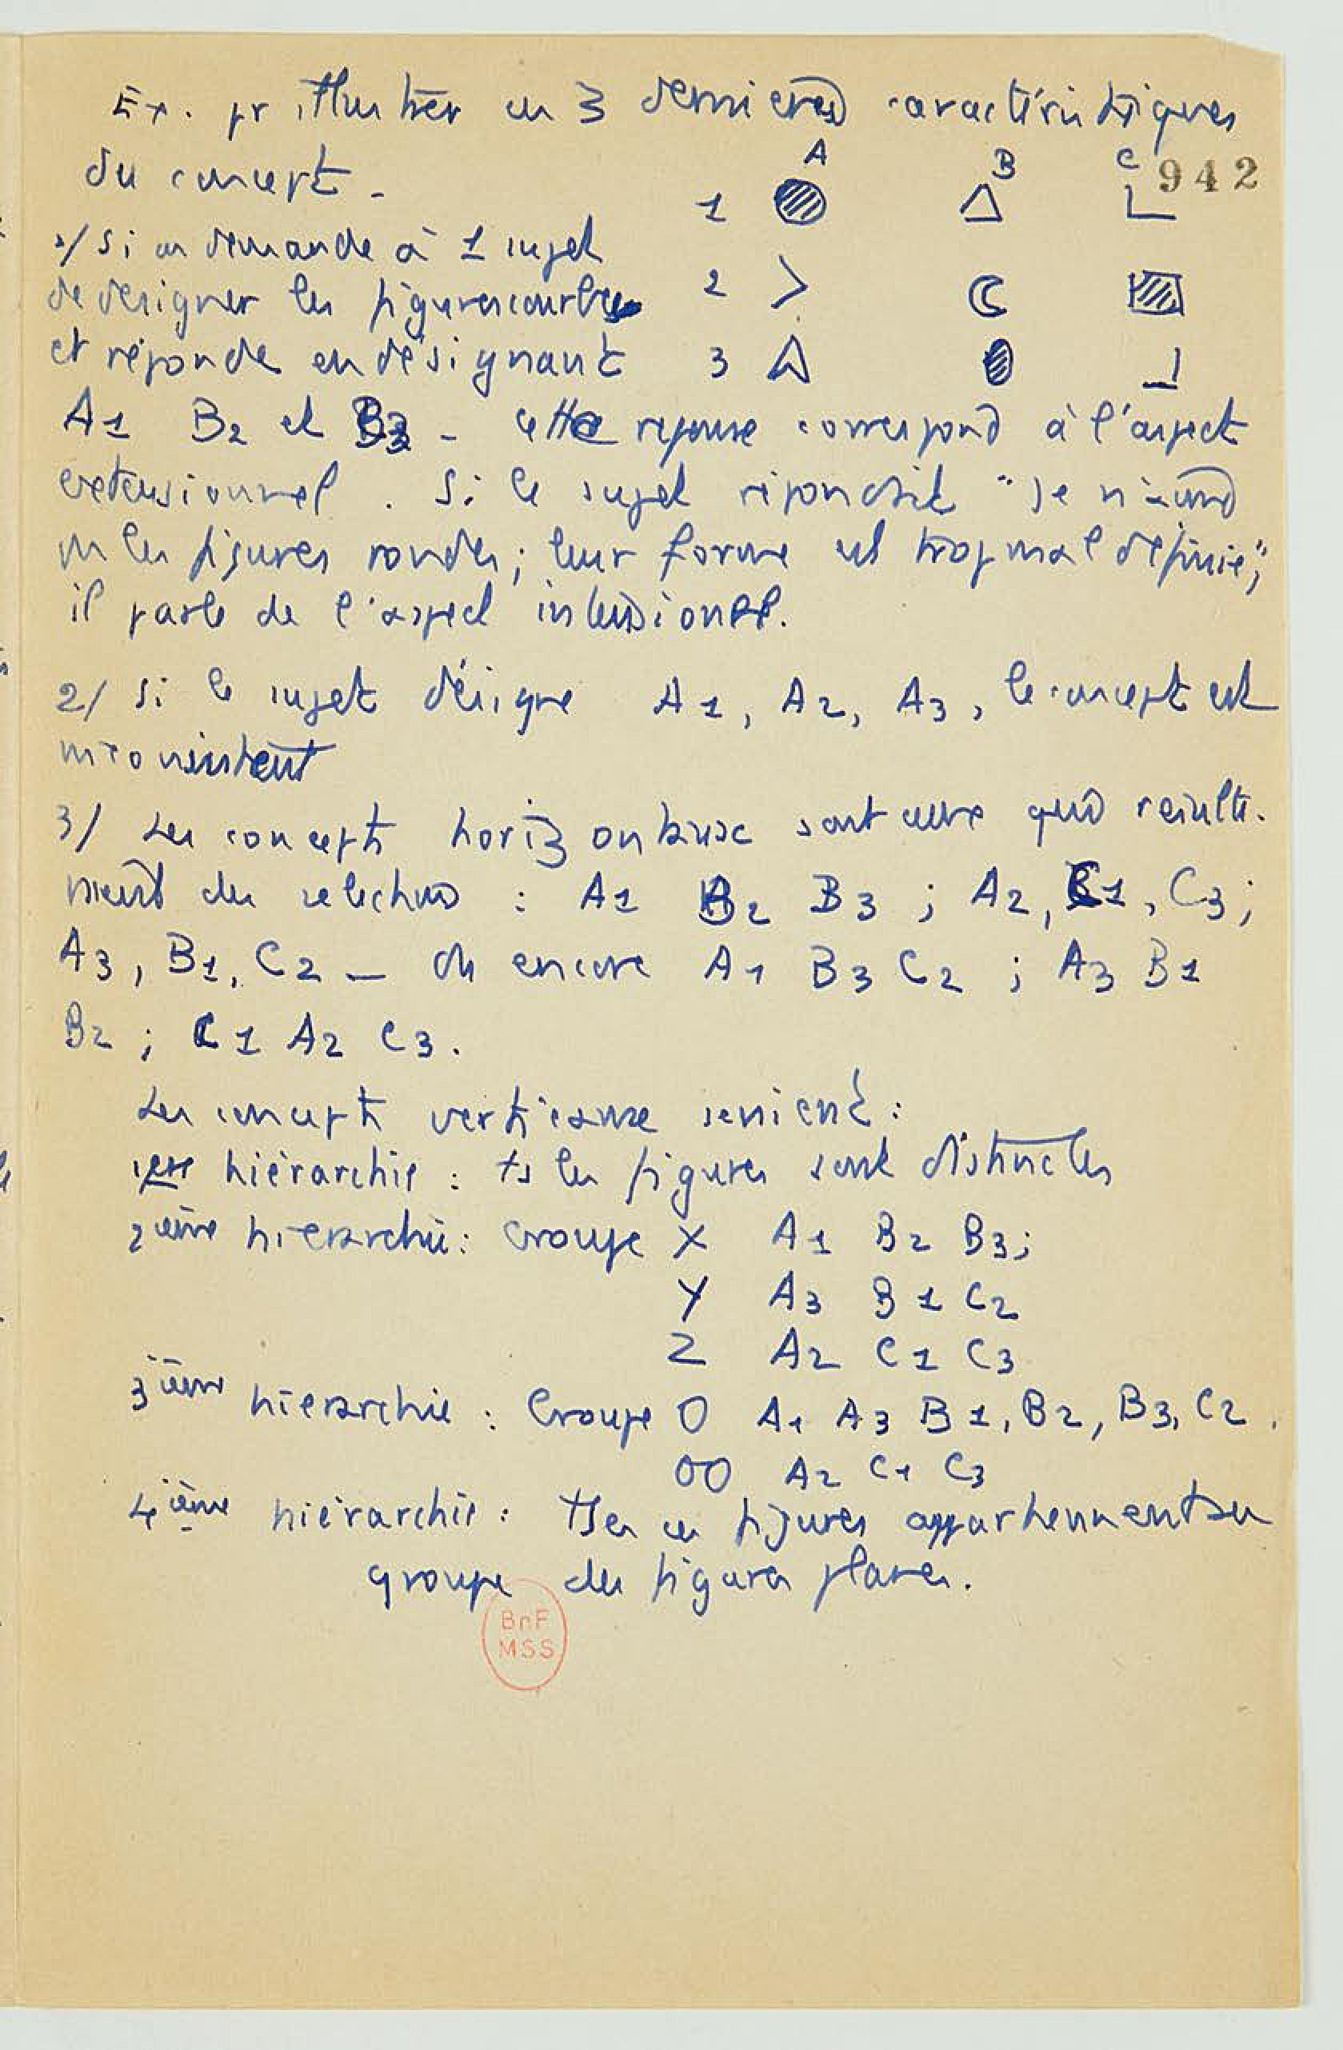 Ex. pr illustrer ces 3 dernières caractéristiques
du concept -
A B C 942
1
1/ Si on demande à 1 sujet
2
de désigner les figures courbes
et réponde en désignant
3
A1 B2 et B3 - cette reponse correspond à l'aspect
extensionnel. Si le sujet répondait "je n'
les figures rondes; leur forme est trop mal définie",
il parle de l'aspect intensionel.
2/ Si le sujet désigne A1, A2, A3, le concept est
inconsistent
3/ Les concepts horizontaux sont ceux qui résulte-
raient des selections : A1 B2 B3 ; A2, C1, C3 ;
A3, B1, C2 - ou encore A1 B3 C2 ; A3 B1
B2 ; C1 A2 C3.
Les concepts verticaux seraient :
1ere hiérarchie : ts les figures sont distinctes
2ième hierarchie : Groupe X A1 B2 B3;
Y A3 B1 C2
Z A2 C1 C3
3ième hierarchie : Groupe O A1 A3 B1, B2, B3, C2.
OO A2 C1 C3
4ième hiérarchie : ttes ces figures appartiennent au
groupe des figures planes.
BnF
MSS